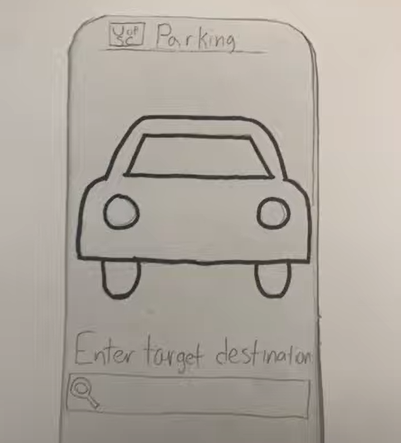 U of SC Parking
Enter target destination